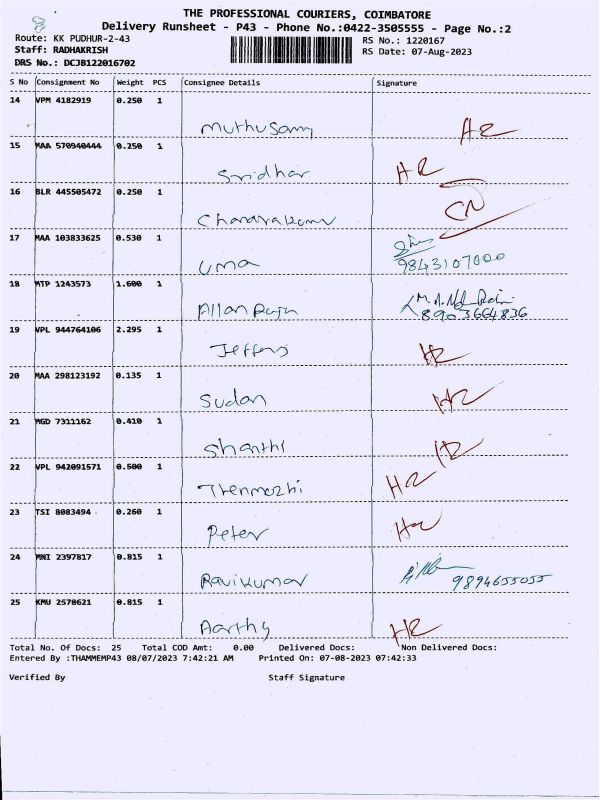 THE PROFESSIONAL COURIERS, COIMBATORE
Delivery Runsheet - P43 - Phone No.:0422-3505555 - Page No.:2
Route: KK PUDHUR-2-43 RS No.: 1220167
Staff: RADHAKRISH RS Date: 07-Aug-2023
DRS No.: DCJB122016702
S No Consignment No Weight PCS Consignee Details Signature
14 VPM 4182919 0.250 1
Muthusamy HR
15 MAA 570940444 0.250 1
Sridhar HR
16 BLR 445505472 0.250 1
Chandrakumar CN
17 MAA 103833625 0.530 1
Uma 9843107000
18 MTP 1243573 1.600 1
Allan Raja 8903664836
19 VPL 944764106 2.295 1
Jeffers HR
20 MAA 298123192 0.135 1
Sudan HR
21 MGD 7311162 0.410 1
Shanthi HR
22 VPL 942091571 0.500 1
Thenmozhi HR
23 TSI 8083494 0.260 1
Peter HR
24 MNI 2397817 0.815 1
Ravikumar 9894655055
25 KMU 2570621 0.815 1
Aarthy HR
Total No. Of Docs: 25 Total COD Amt: 0.00 Delivered Docs: Non Delivered Docs:
Entered By :THAMMEMP43 08/07/2023 7:42:21 AM Printed On: 07-08-2023 07:42:33
Verified By Staff Signature